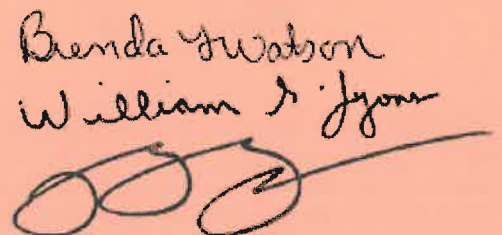 Brenda Y Watson
William S. Lyons